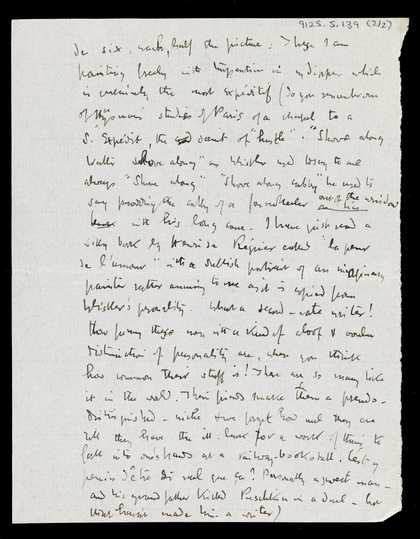 9125.5.139 (2/2)
de six weeks, half the picture. I hope I am
painting freely with turpentine in my dipper which
is certainly the most expéditif (Do you remember
of Huysmans' studies of Paris of a chapel to a
S. Expédit, the saint of "hustle". "Shove along
Walter shove along" as Whistler used to say to me
always "Shove along" "Shove along cabby" he used to
say prodding the cabby of a fourwheeler out of the window
with his long cane. I have just read a
silly book by Henri de Régnier called "la peur
de l'amour" with a sketchy portrait of an imaginary
painter rather amusing to me as it is copied from
Whistler's personality. What a second-rate writer!
How funny these men with a kind of aloof &
distinction of personality are, when you think
how common their stuff is! There are so many like
it in the world. Their friends make them a pseudo-
distinguished - niche & we forget how mad they are
till they have the ill-luck for a work of theirs to
fall into one's hands at a railway-bookstall.
peut-être du mal que ça? Personally a sweet man -
and his grandfather killed Puschkin in a duel - but
that hasn't made him a writer)